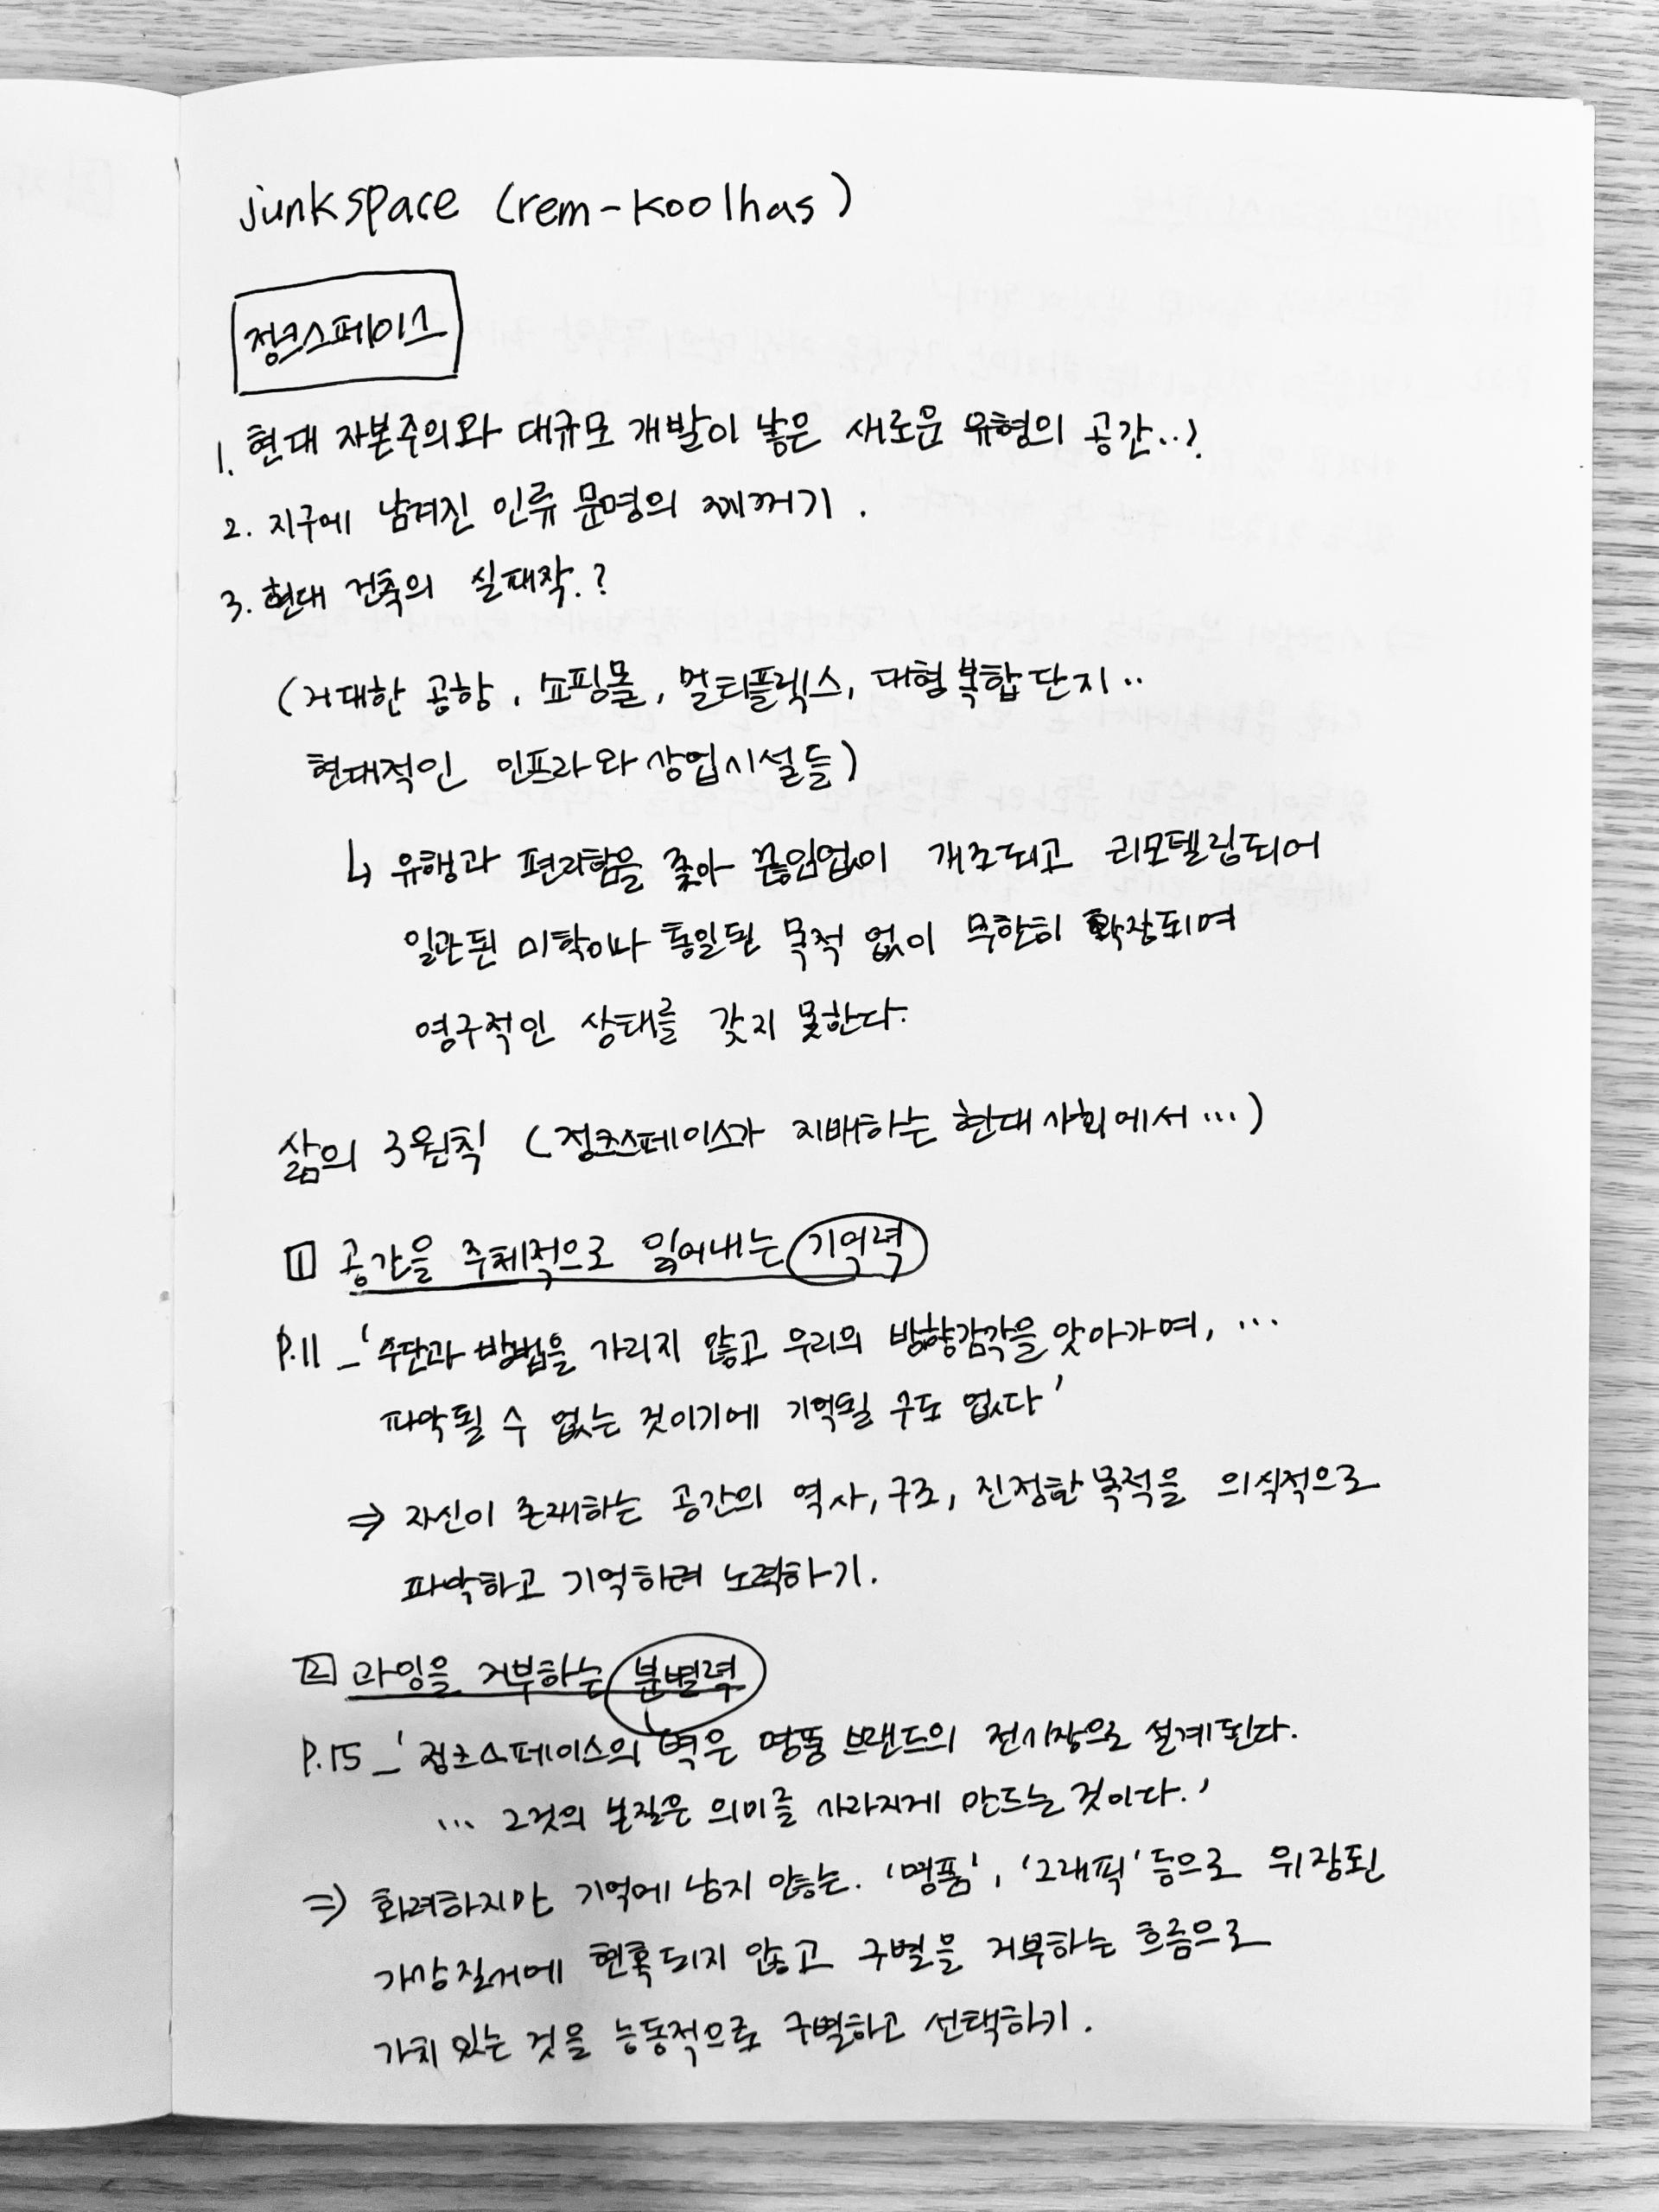 junkspace (rem-koolhas)
정크스페이스
1. 현대 자본주의와 대규모 개발이 낳은 새로운 유형의 공간..?
2. 지구에 남겨진 인류 문명의 찌꺼기.
3. 현대 건축의 실패작.?
(거대한 공항, 쇼핑몰, 멀티플렉스, 대형 복합 단지..
현대적인 인프라와 상업시설들)
↳ 유행과 편리함을 좇아 끊임없이 개조되고 리모델링되어
일관된 미학이나 통일된 목적 없이 무한히 확장되며
영구적인 상태를 갖지 못한다.
삶의 3원칙 (정크스페이스가 지배하는 현대 사회에서...)
1 공간을 주체적으로 읽어내는 기억력
P.11_'수단과 방법을 가리지 않고 우리의 방향감각을 앗아가며, ...
파악될 수 없는 것이기에 기억될 수도 없다'
⇒ 자신이 존재하는 공간의 역사, 구조, 진정한 목적을 의식적으로
파악하고 기억하려 노력하기.
2 과잉을 거부하는 분별력
P.15_'정크스페이스의 벽은 명품 브랜드의 전시장으로 설계된다.
... 그것의 본질은 의미를 사라지게 만드는 것이다.'
⇒ 화려하지만 기억에 남지 않는. '명품', '그래픽' 등으로 위장된
가상 질서에 현혹되지 않고 구별을 거부하는 흐름으로
가치 있는 것을 능동적으로 구별하고 선택하기.